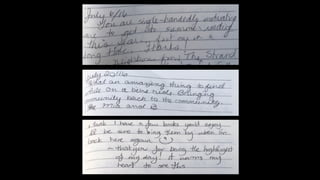 July 6/16
You are single-handedly motivating
me to get its summer reading
this year. first one in a
long time. Thanks!
Neighbour from The Strand
July 20/16
What an amazing thing to find
while on a bike ride. Bringing
community back to the community.
Mia and B
I think I have a few books you'd enjoy
I'll be sure to bring them by when I'm
back here again
thank you for being the highlight
of my day. it warms my
heart to see this